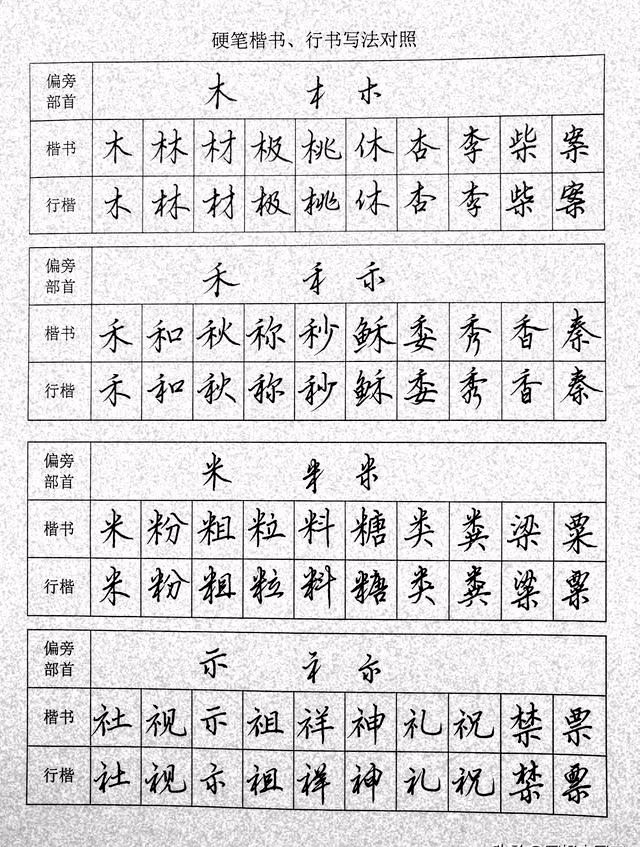 硬笔楷书、行书写法对照
偏旁部首 木
楷书 木 林 材 极 桃 休 杏 李 柴 案
行楷 木 林 材 极 桃 休 杏 李 柴 案
偏旁部首 禾
楷书 禾 和 秋 称 秒 稣 委 秀 香 秦
行楷 禾 和 秋 称 秒 稣 委 秀 香 秦
偏旁部首 米
楷书 米 粉 粗 粒 料 糖 类 粪 粱 粟
行楷 米 粉 粗 粒 料 糖 类 粪 粱 粟
偏旁部首 示 礻
楷书 社 视 示 祖 祥 神 礼 祝 禁 票
行楷 社 视 示 祖 祥 神 礼 祝 禁 票